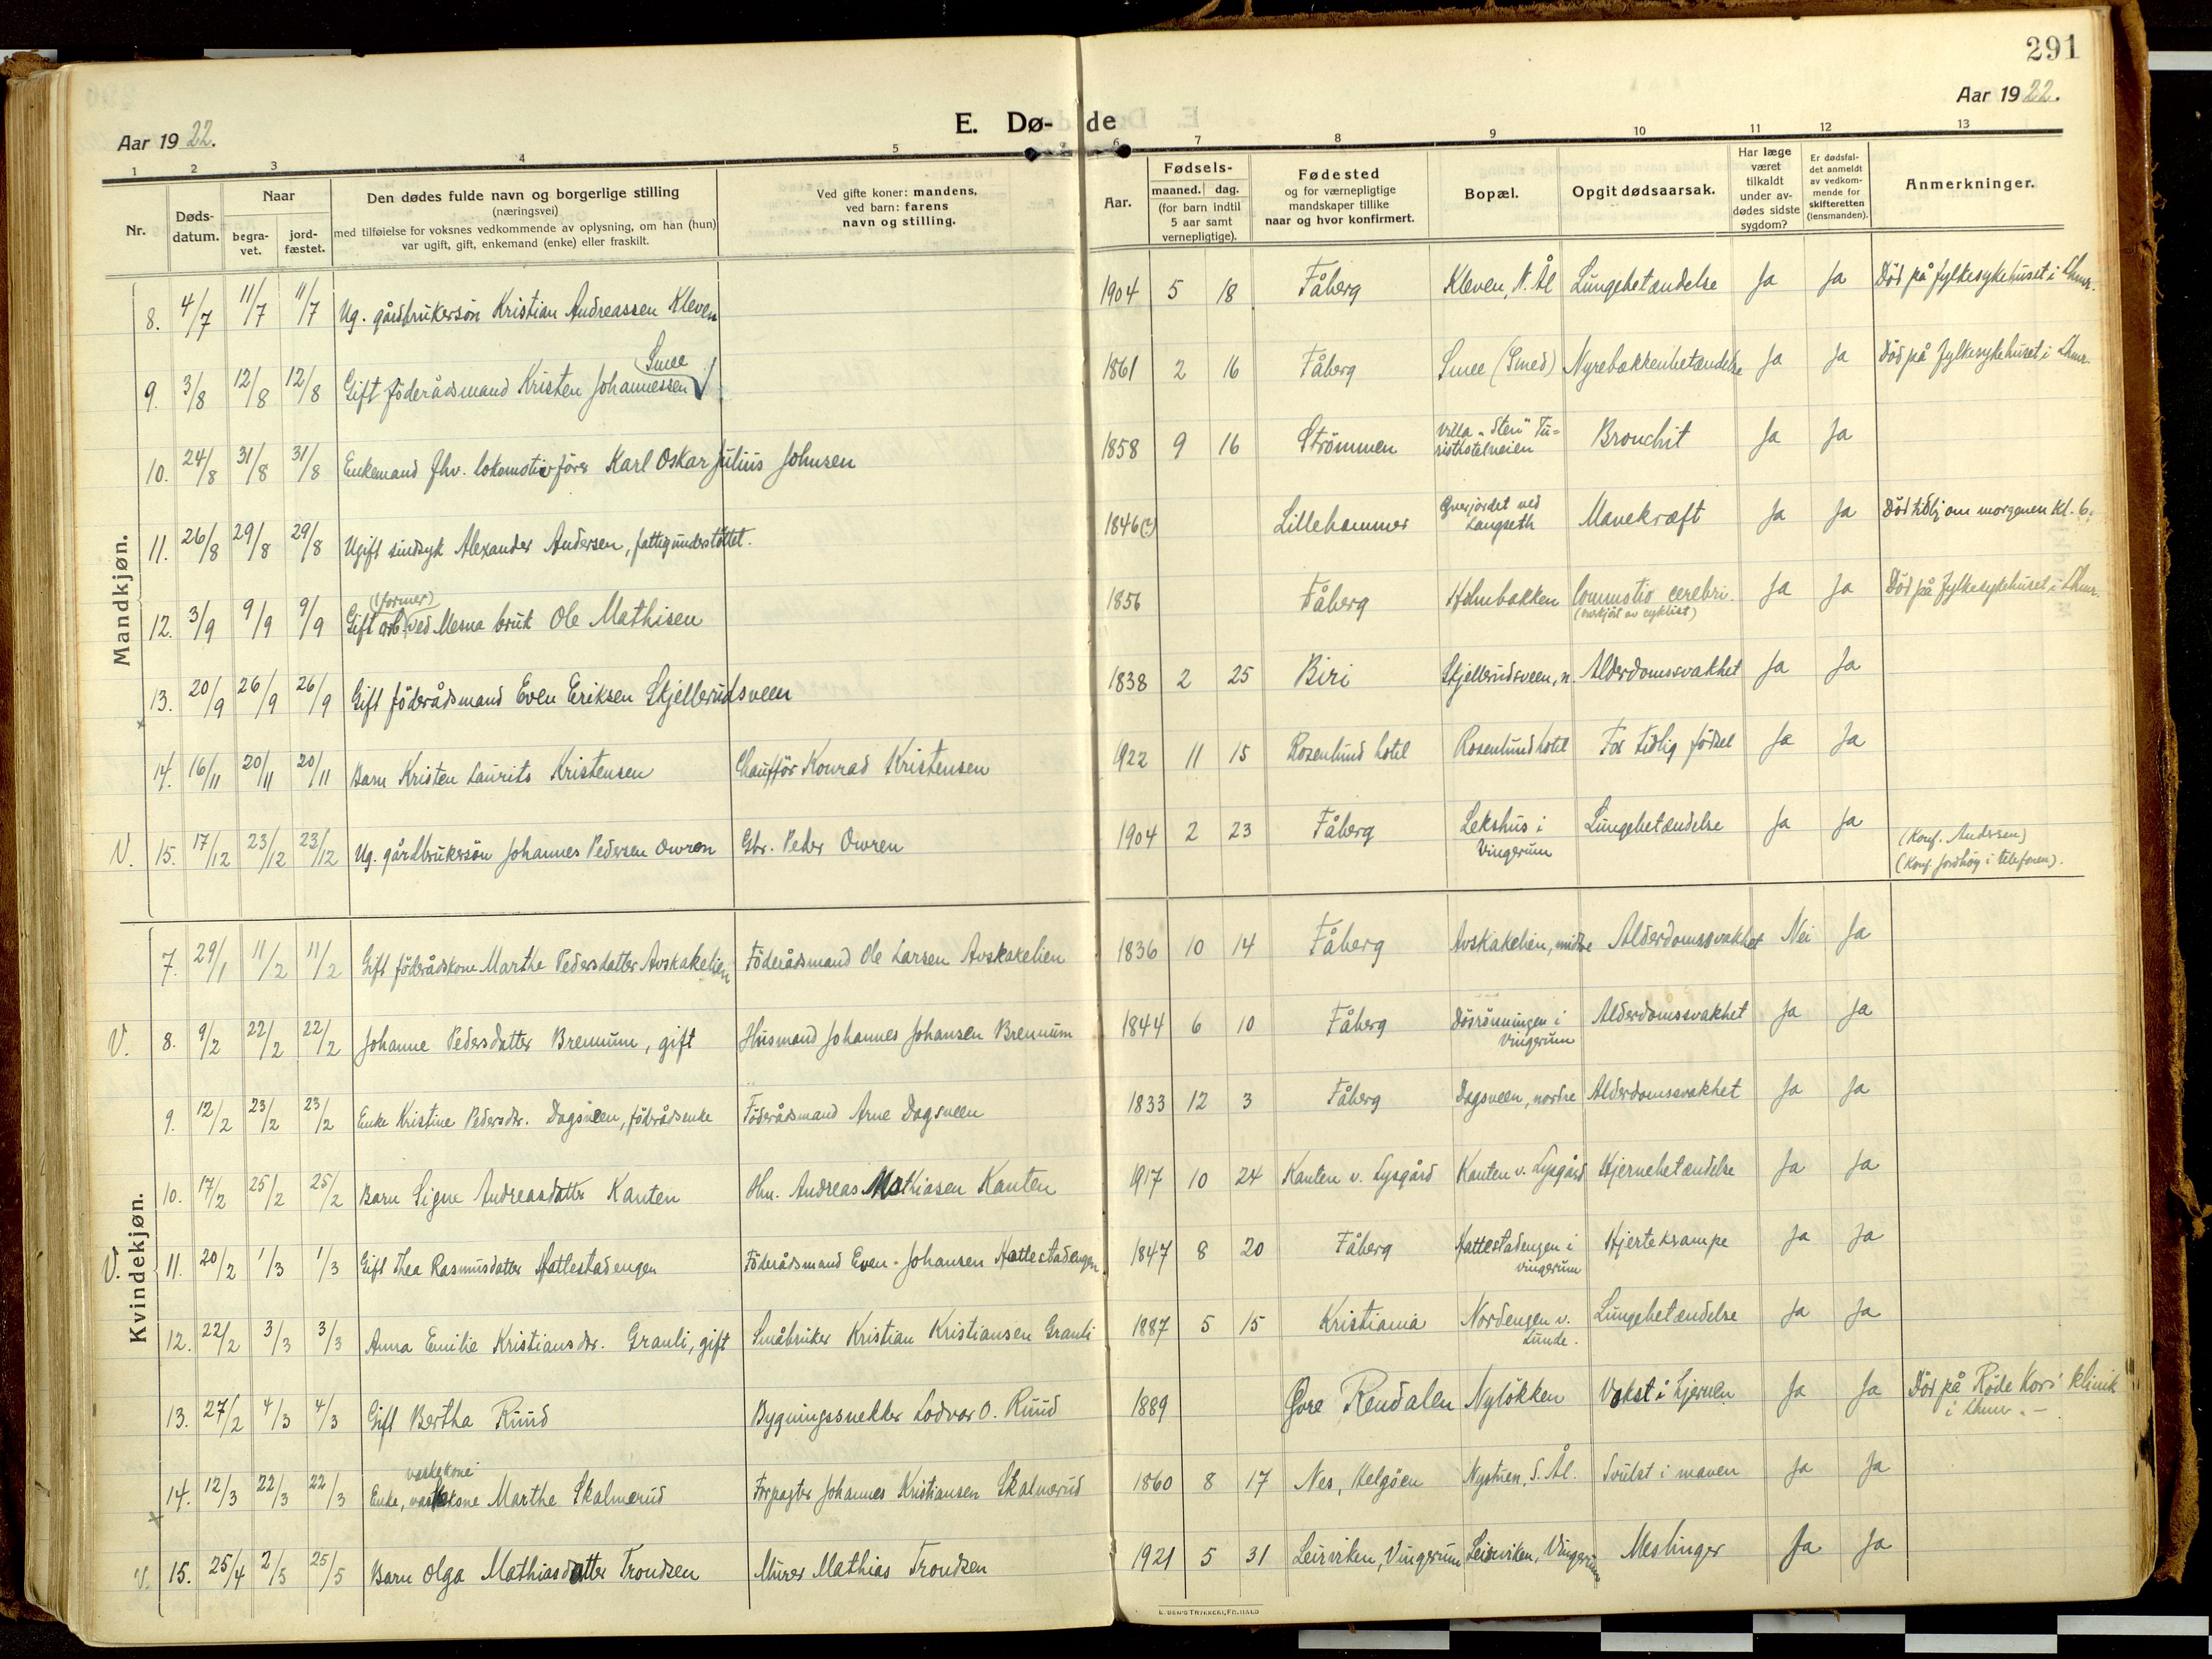 291
Aar 1922.
E. Dø- de
Aar 1922.
1 2 3 4 5 6 7 8 9 10 11 12 13
Nr.
Døds-datum.
Naar
begra-vet.
jord-fæstet.
Den dødes fulde navn og borgerlige stilling
(næringsvei)
med tilføielse for voksnes vedkommende av oplysning, om han (hun)
var ugift, gift, enkemand (enke) eller fraskilt.
Ved gifte koner: mandens,
ved barn: farens
navn og stilling.
Aar.
Fødsels-
maaned. dag.
(for barn indtil
5 aar samt
vernepligtige).
Fødested
og for værnepligtige
mandskaper tillike
naar og hvor konfirmert.
Bopæl.
Opgit dødsaarsak.
Har læge
været
tilkaldt
under av-
dødes sidste
sygdom?
Er dødsfal-
det anmeldt
av vedkom-
mende for
skifteretten
(lensmanden).
Anmerkninger.
Mandkjøn.
8. 4/7 11/7 11/7 Ug. gårdbrukersön Kristian Andreassen Kleven 1904 5 18 Fåberg Kleven, N. Ål Lungebetændelse Ja Ja Död på fylkesykehuset i Lhmr.
9. 3/8 12/8 12/8 Gift föderådsmand Kristen Johannessen Smee 1861 2 16 Fåberg Smee (Smed) Nyrebækkenbetændelse Ja Ja Död på fylkesykehuset i Lhmr.
10. 24/8 31/8 31/8 Enkemand fhv. lokomotivförer Karl Oskar Julius Johnsen 1858 9 16 Strömmen Villa "Sten" Tu=
risthotelveien Bronchit Ja Ja
11. 26/8 29/8 29/8 Ugift sindsyk Alexander Andersen, fattigunderstöttet. 1846(?) Lillehammer ved
Langseth Mavekræft Ja Ja Död tidlig om morgenen kl. 6.
12. 3/9 9/9 9/9 Gift arb. (former) ved Mesna bruk Ole Mathisen 1856 Fåberg Holmbakken Commotio cerebri.
(overkjört av cyklist) Ja Ja Död på fylkesykehuset i Lhmr.
13. 20/9 26/9 26/9 Gift föderådsmand Even Eriksen Skjellerudsveen 1838 2 25 Biri Skjellerudsveen, n. Alderdomssvakhet Ja Ja
14. 16/11 20/11 20/11 Barn Kristen Laurits Kristensen Chaufför Konrad Kristensen 1922 11 15 Rosenlund hotel Rosenlund hotel For tidlig födsel Ja Ja
V. 15. 17/12 23/12 23/12 Ug. gårdbrukersön Johannes Pedersen Owren Gbr. Peder Owren 1904 2 23 Fåberg Lekshus i
Vingerum Lungebetændelse Ja Ja (Konf. Andersen)
(Konf. i telefonen).
Kvindekjøn.
7. 29/1 11/2 11/2 Gift föderådskone Marthe Pedersdatter Avskakelien Föderådsmand Ole Larsen Avskakelien 1836 10 14 Fåberg Avskakelien, midtre Alderdomssvakhet Nei Ja
V. 8. 9/2 22/2 22/2 Johanne Pedersdatter Brennum, gift Husmand Johannes Johansen Brennum 1844 6 10 Fåberg i
Vingerum Alderdomssvakhet Ja Ja
9. 12/2 23/2 23/2 Enke Kristine Pedersdr. Dagsveen, föderådsenke Föderådsmand Arne Dagsveen 1833 12 3 Fåberg Dagsveen, nordre Alderdomssvakhet Ja Ja
10. 17/2 25/2 25/2 Barn Signe Andreasdatter Kanten Hm. Andreas Mathiasen Kanten 1917 10 24 Kanten v. Lysgård Kanten v. Lysgård Hjernebetændelse Ja Ja
V. 11. 20/2 1/3 1/3 Gift Thea Rasmusdatter Hattestadengen Föderådsmand Even Johansen Hattestadengen 1847 8 20 Fåberg Hattestadengen i
Vingerum Hjertekrampe Ja Ja
12. 22/2 3/3 3/3 Anna Emilie Kristiansdr. Granli, gift Småbruker Kristian Kristiansen Granli 1887 5 15 Kristiania Nordengen v.
Lunde. Lungebetændelse Ja Ja
13. 27/2 4/3 4/3 Gift Bertha Ruud Bygningssnekker Lodvar O. Ruud 1889 Øvre Rendalen Nylökken Vekst i hjernen Ja Ja Död på Röde Kors' klinik
i Lhmr. -
14. 12/3 22/3 22/3 Enke, vaskekone Marthe Skalmerud vaskekone Forpagter Johannes Kristiansen Skalmerud 1860 8 17 Nes, Helgöen Nystuen, S. Ål. Svulst i maven Ja Ja
V. 15. 25/4 2/5 25/5 Barn Olga Mathiasdatter Trondsen Murer Mathias Trondsen 1921 5 31 Leirviken, Vingerum Leirviken, Vingerum Meslinger Ja Ja